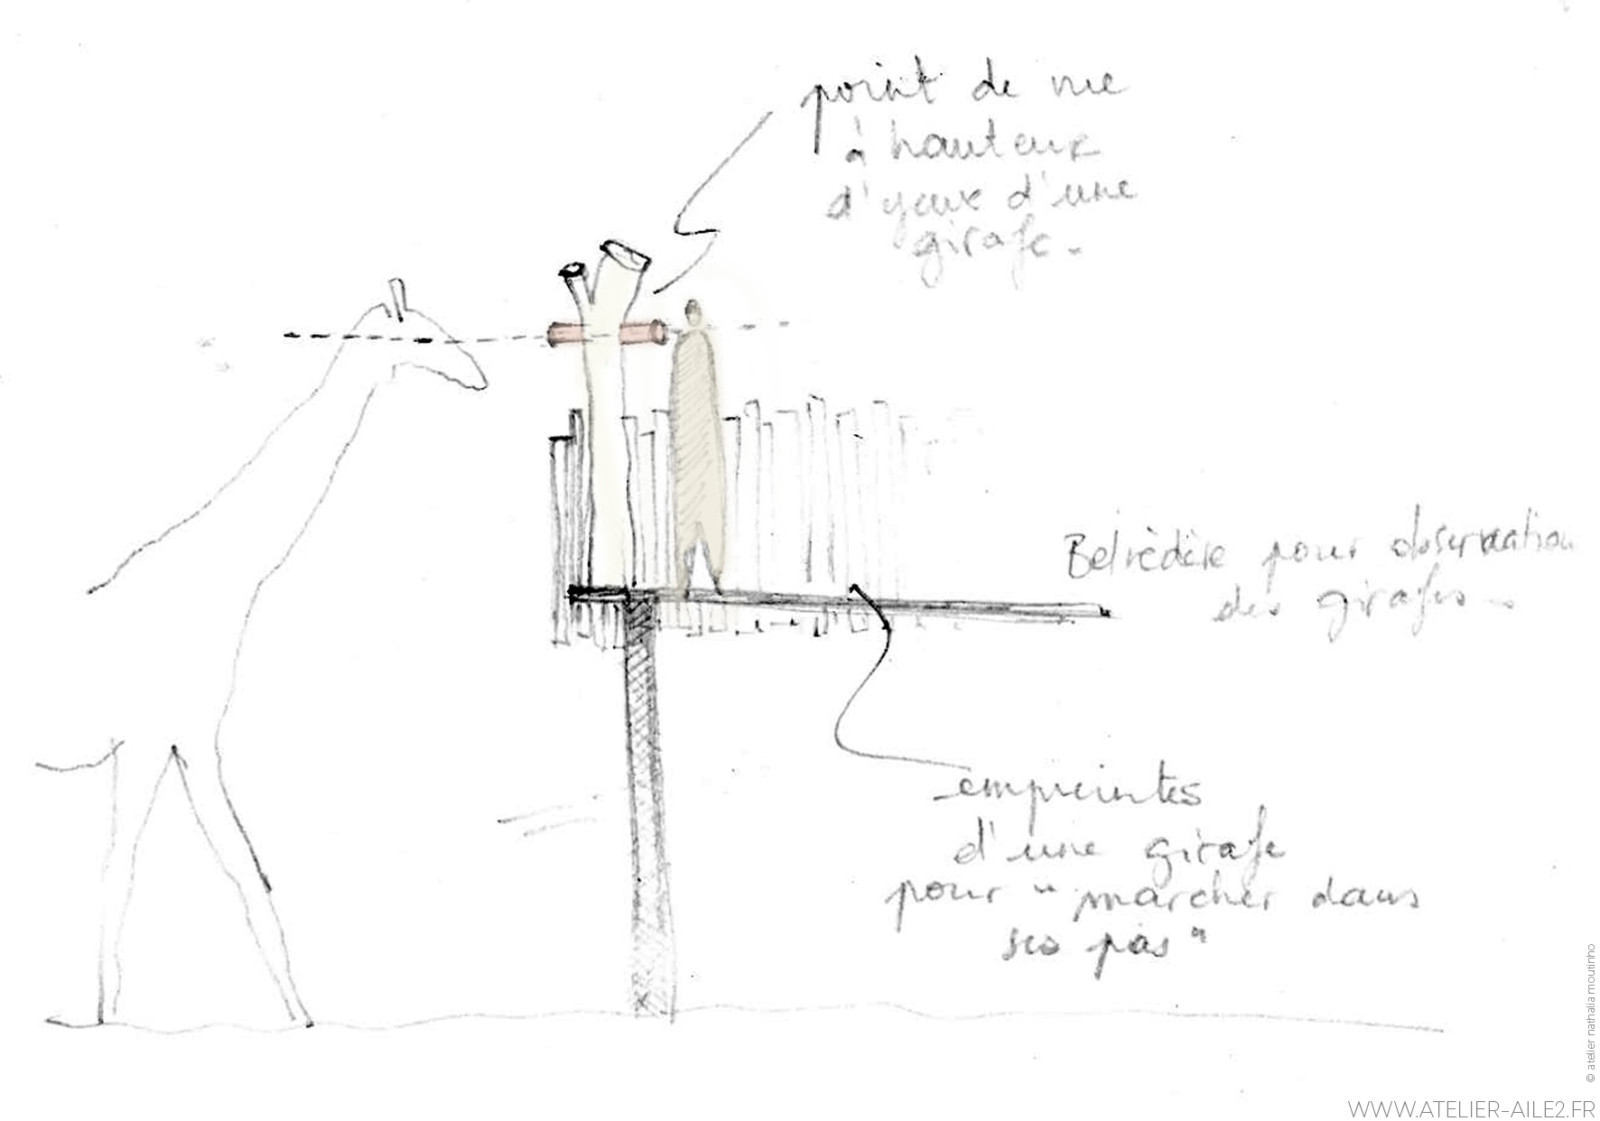 point de vue
à hauteur
d'yeux d'une
girafe.
Belvédère pour observation
des girafes..
empreintes
d'une girafe
pour "marcher dans
ses pas"
© atelier nathalia moutinho
WWW.ATELIER-AILE2.FR